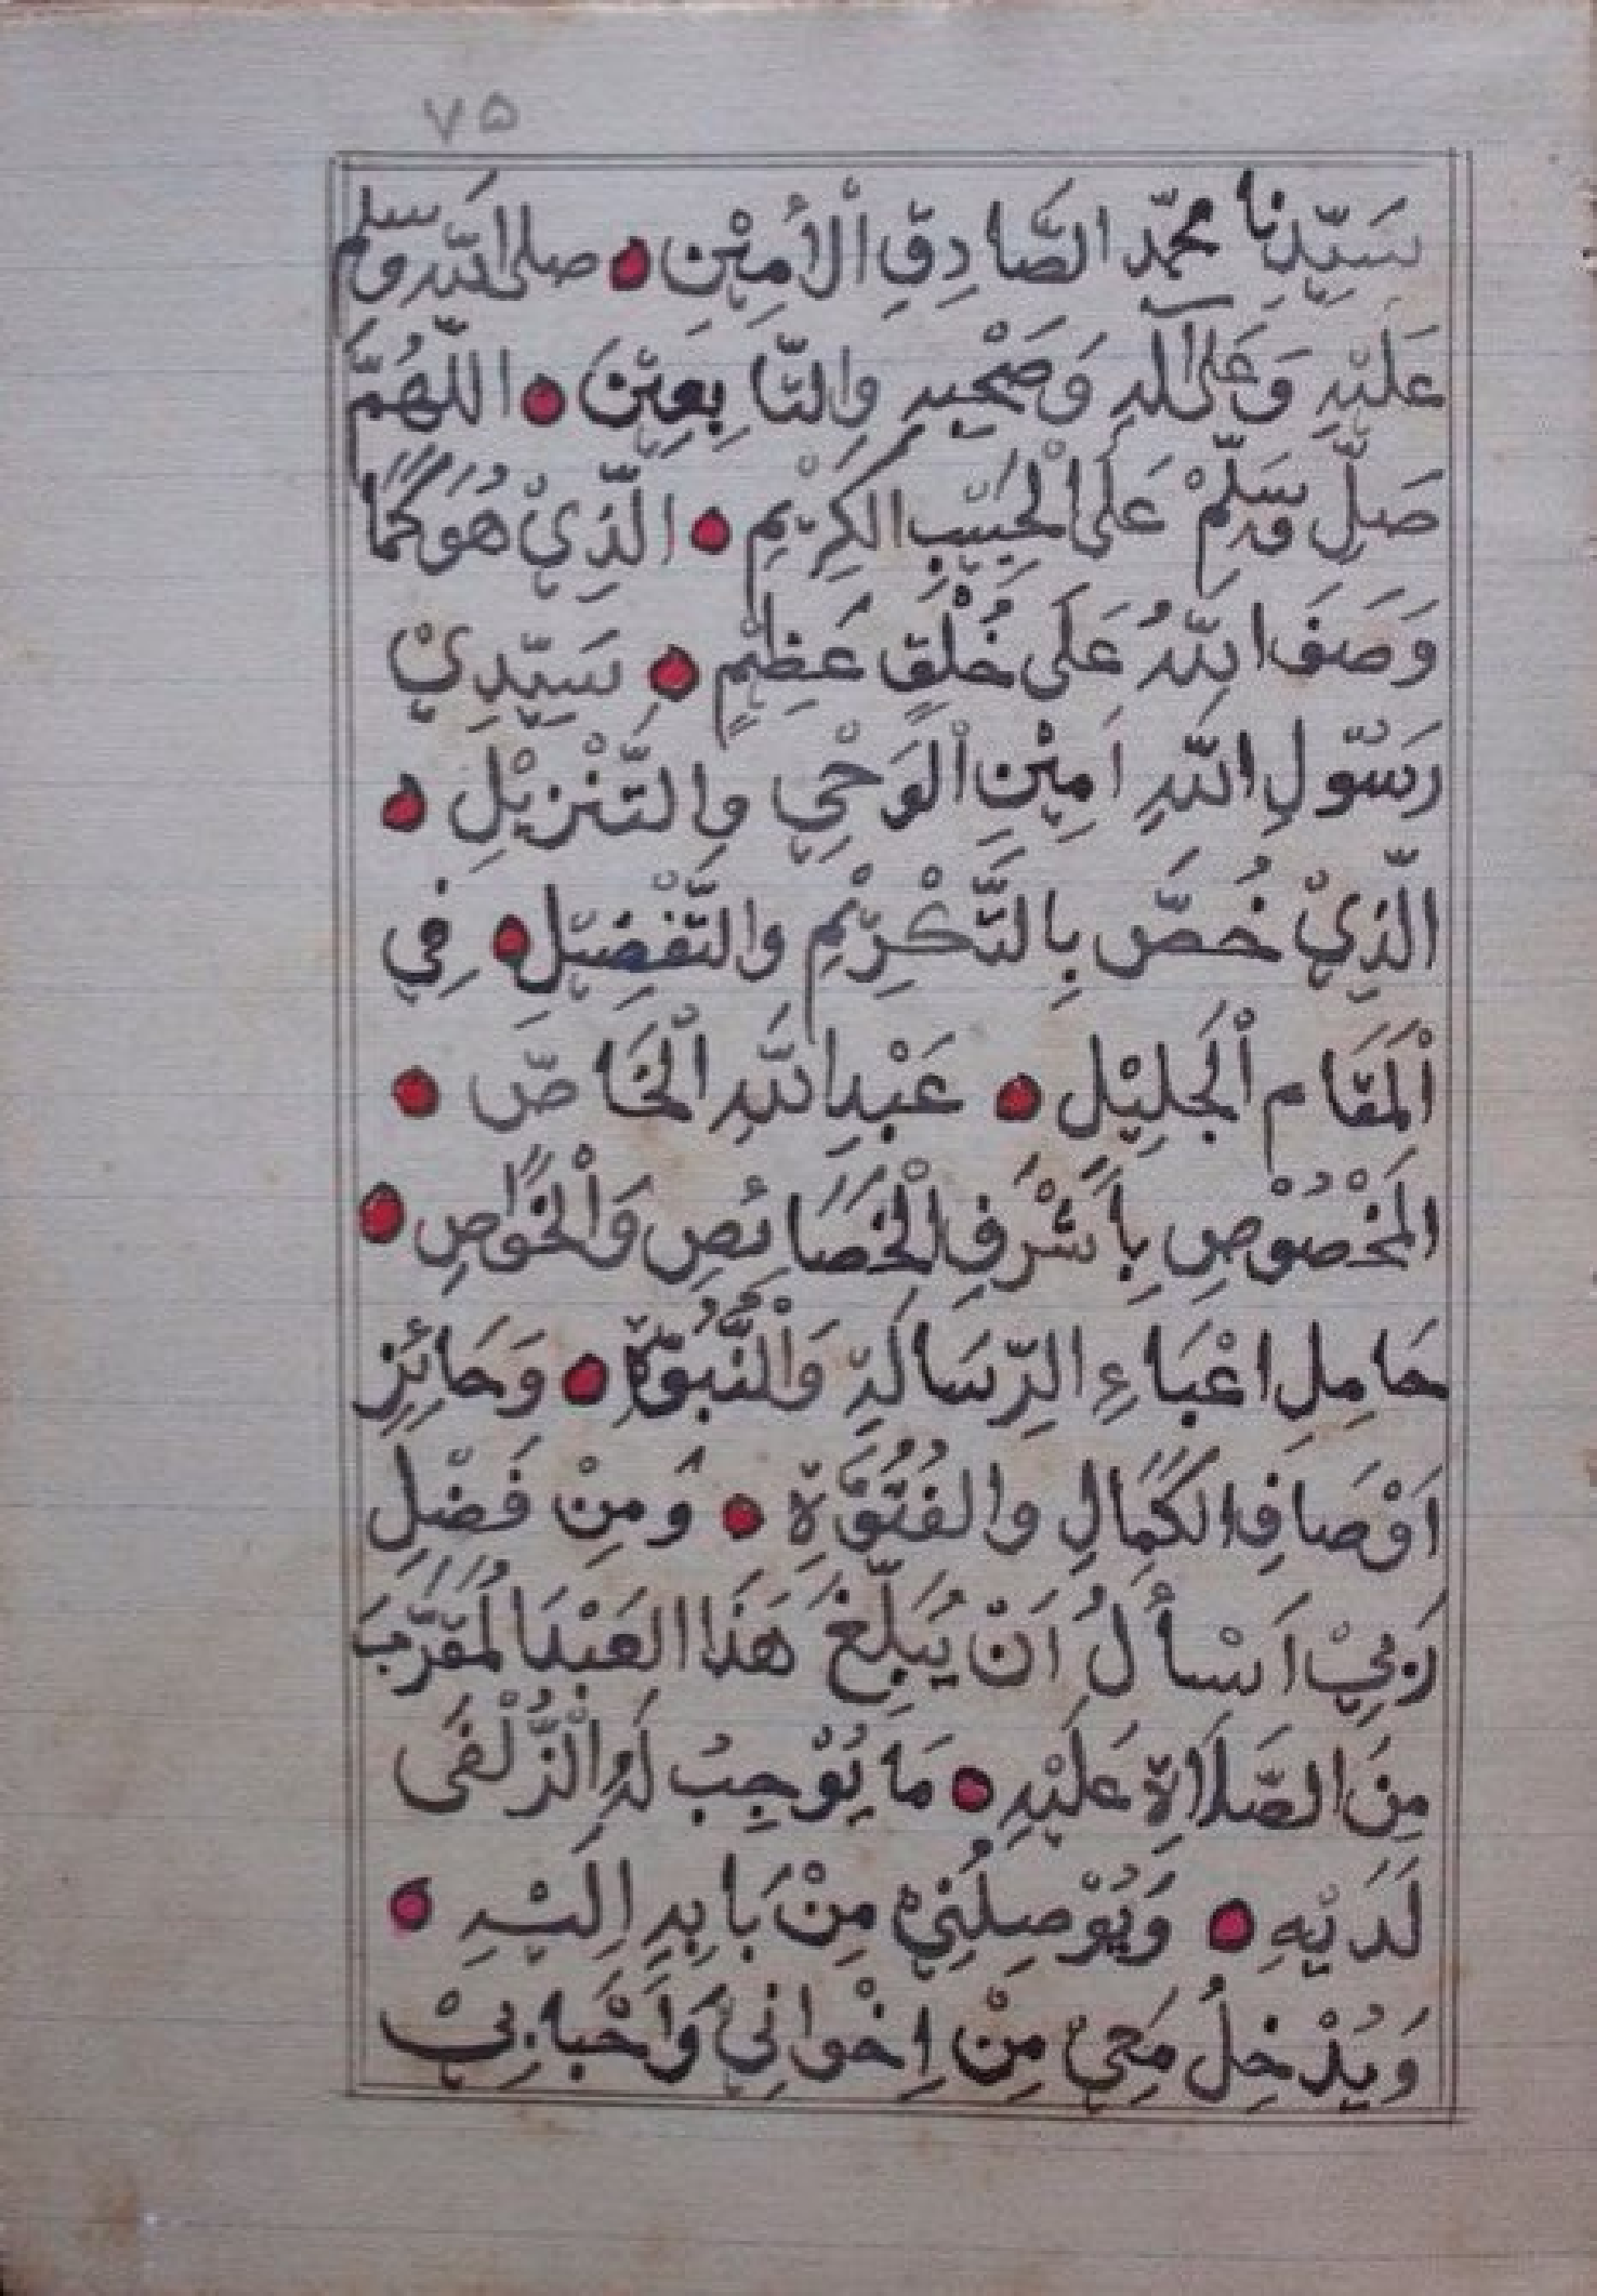 ٧۵
سَيِّدِنَا محمّدٍ الصَّادِقِ الْأَمِيْنِ • صلى اللّٰه وسلم
عَلَيْهِ وَعَلَى آلِهِ وَصَحْبِهِ وَالتَّابِعِيْنَ • اللّهُمَّ
صَلِّ وَسَلِّمْ عَلَى الْحَبِيْبِ الكَرِيْمِ • الَّذِيْ هُوَ كَمَا
وَصَفَ اللّٰهُ عَلَى خُلْقٍ عَظِيْمٍ • سَيِّدِيْ
رَسُوْلِ اللّٰهِ اَمِيْنِ الْوَحْيِ وَالتَّنْزِيْلِ •
الَّذِيْ خُصَّ بِالتَّكْرِيْمِ وَالتَّفْضِيْلِ • فِي
الْمَقَامِ الْجَلِيْلِ • عَبْدِ اللّٰهِ الْخَاصِّ •
المَخْصُوْصِ بِأَشْرَفِ الْخَصَائِصِ وَالْخَوَاصِ •
حَامِلِ اعْبَاءِ الرِّسَالَةِ وَالنُّبُوَّةِ • وَحَائِزِ
اَوْصَافِ الكَمَالِ وَالفُتُوَّةِ • وَمِنْ فَضْلِ
رَبِّيْ اَسْأَلُ اَنْ يُبَلِّغَ هَذَا العَبْدَ الْمُقَرَّبَ
مِنَ الصَّلَاةِ عَلَيْهِ • مَا يُوْجِبُ لَهُ الزُّلْفَى
لَدَيْهِ • وَيُوْصِلُنِيْ مِنْ بَابِهِ اِلَيْهِ •
وَيُدْخِلُ مَعِيْ مِنْ اِخْوَانِيْ وَاَحْبَابِيْ